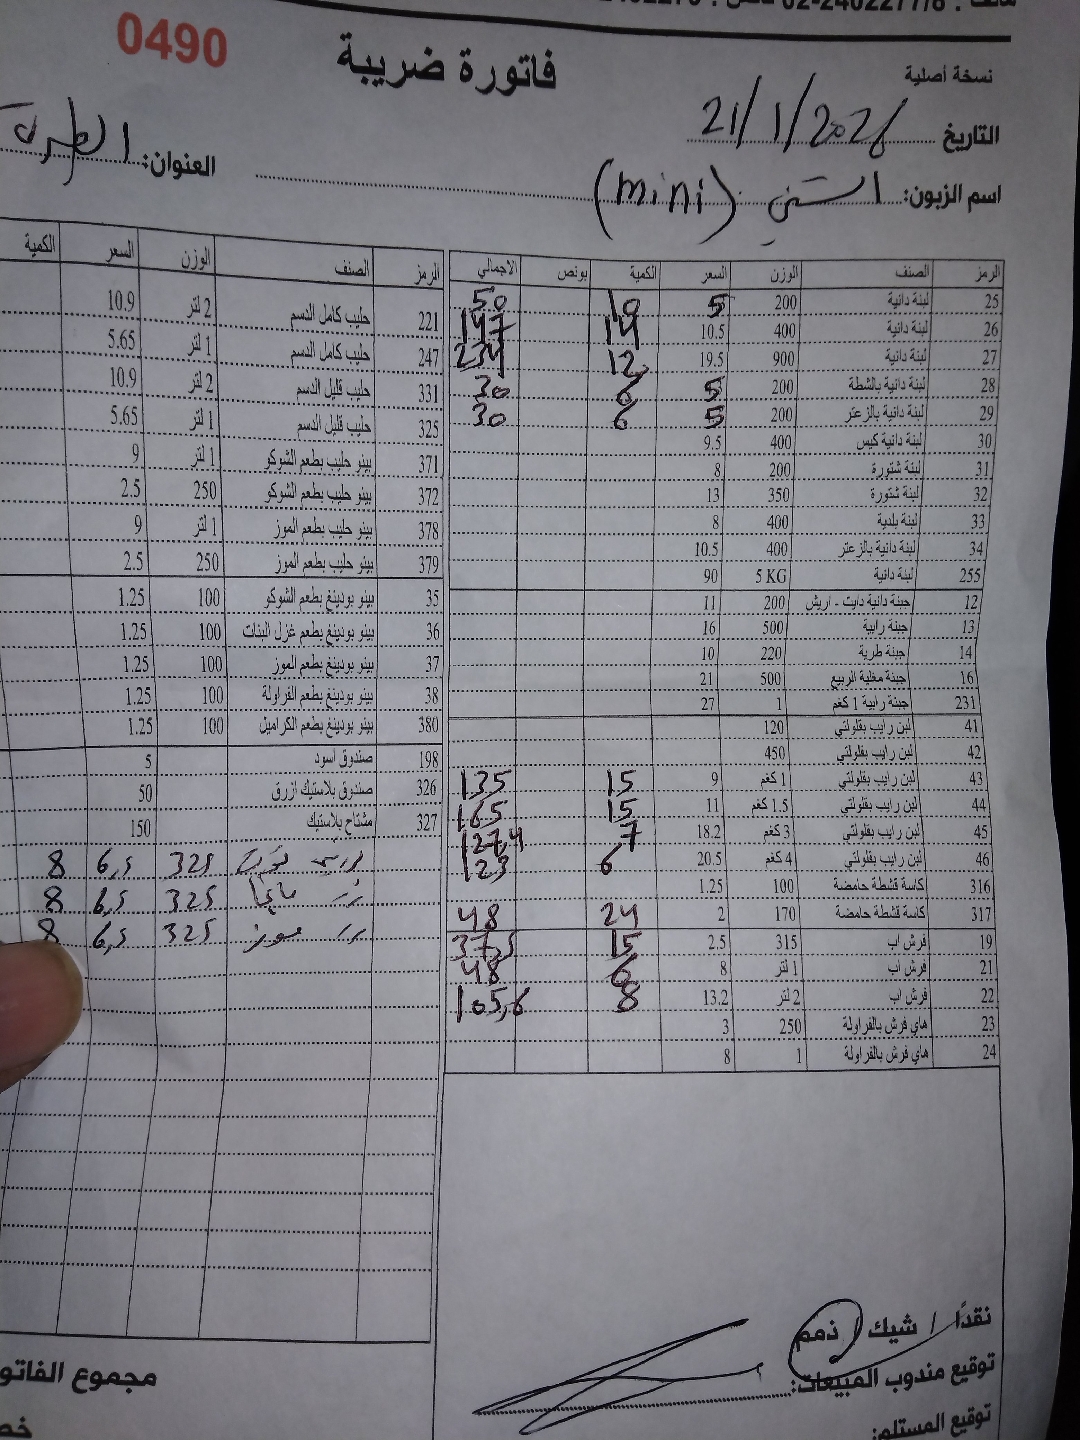 هاتف : 02-2402277/8 فاكس :
0490
فاتورة ضريبة
نسخة أصلية
التاريخ 21/1/2026
اسم الزبون: (mini)
العنوان:
الرمز الصنف الوزن السعر الكمية بونص الاجمالي
25 لبنة دانية 200 5 10 50
26 لبنة دانية 400 10.5 14 147
27 لبنة دانية 900 19.5 12 234
28 لبنة دانية بالشطة 200 5 6 30
29 لبنة دانية بالزعتر 200 5 6 30
30 لبنة دانية كيس 400 9.5
31 لبنة شتورة 200 8
32 لبنة شتورة 350 13
33 لبنة بلدية 400 8
34 لبنة دانية بالزعتر 400 10.5
255 لبنة دانية 5 KG 90
12 جبنة دانية دايت - اريش 200 11
13 جبنة رابية 500 16
14 جبنة طرية 220 10
16 جبنة مغلية الربيع 500 21
231 جبنة رابية 1 كغم 1 27
41 لبن رايب بقلولتي 120
42 لبن رايب بقلولتي 450
43 لبن رايب بقلولتي 1 كغم 9 15 135
44 لبن رايب بقلولتي 1.5 كغم 11 15 165
45 لبن رايب بقلولتي 3 كغم 18.2 7 127,4
46 لبن رايب بقلولتي 4 كغم 20.5 6 123
316 كاسة قشطة حامضة 100 1.25
317 كاسة قشطة حامضة 170 2 24 48
19 فرش اب 315 2.5 15 37,5
21 فرش اب 1 لتر 8 6 48
22 فرش اب 2 لتر 13.2 8 105,6
23 هاي فرش بالفراولة 250 3
24 هاي فرش بالفراولة 1 8
الرمز الصنف الوزن السعر الكمية
221 حليب كامل الدسم 2 لتر 10.9
247 حليب كامل الدسم 1 لتر 5.65
331 حليب قليل الدسم 2 لتر 10.9
325 حليب قليل الدسم 1 لتر 5.65
371 بينو حليب بطعم الشوكو 1 لتر 9
372 بينو حليب بطعم الشوكو 250 2.5
378 بينو حليب بطعم الموز 1 لتر 9
379 بينو حليب بطعم الموز 250 2.5
35 بينو بودينغ بطعم الشوكو 100 1.25
36 بينو بودينغ بطعم غزل البنات 100 1.25
37 بينو بودينغ بطعم الموز 100 1.25
38 بينو بودينغ بطعم الفراولة 100 1.25
380 بينو بودينغ بطعم الكراميل 100 1.25
198 صندوق اسود 5
326 صندوق بلاستيك ازرق 50
327 مشتاح بلاستيك 150
325 6,5 8
325 6,5 8
موز 325 6,5 8
نقدًا / شيك / ذمم
توقيع مندوب المبيعات:
توقيع المستلم:
مجموع الفاتو
خص